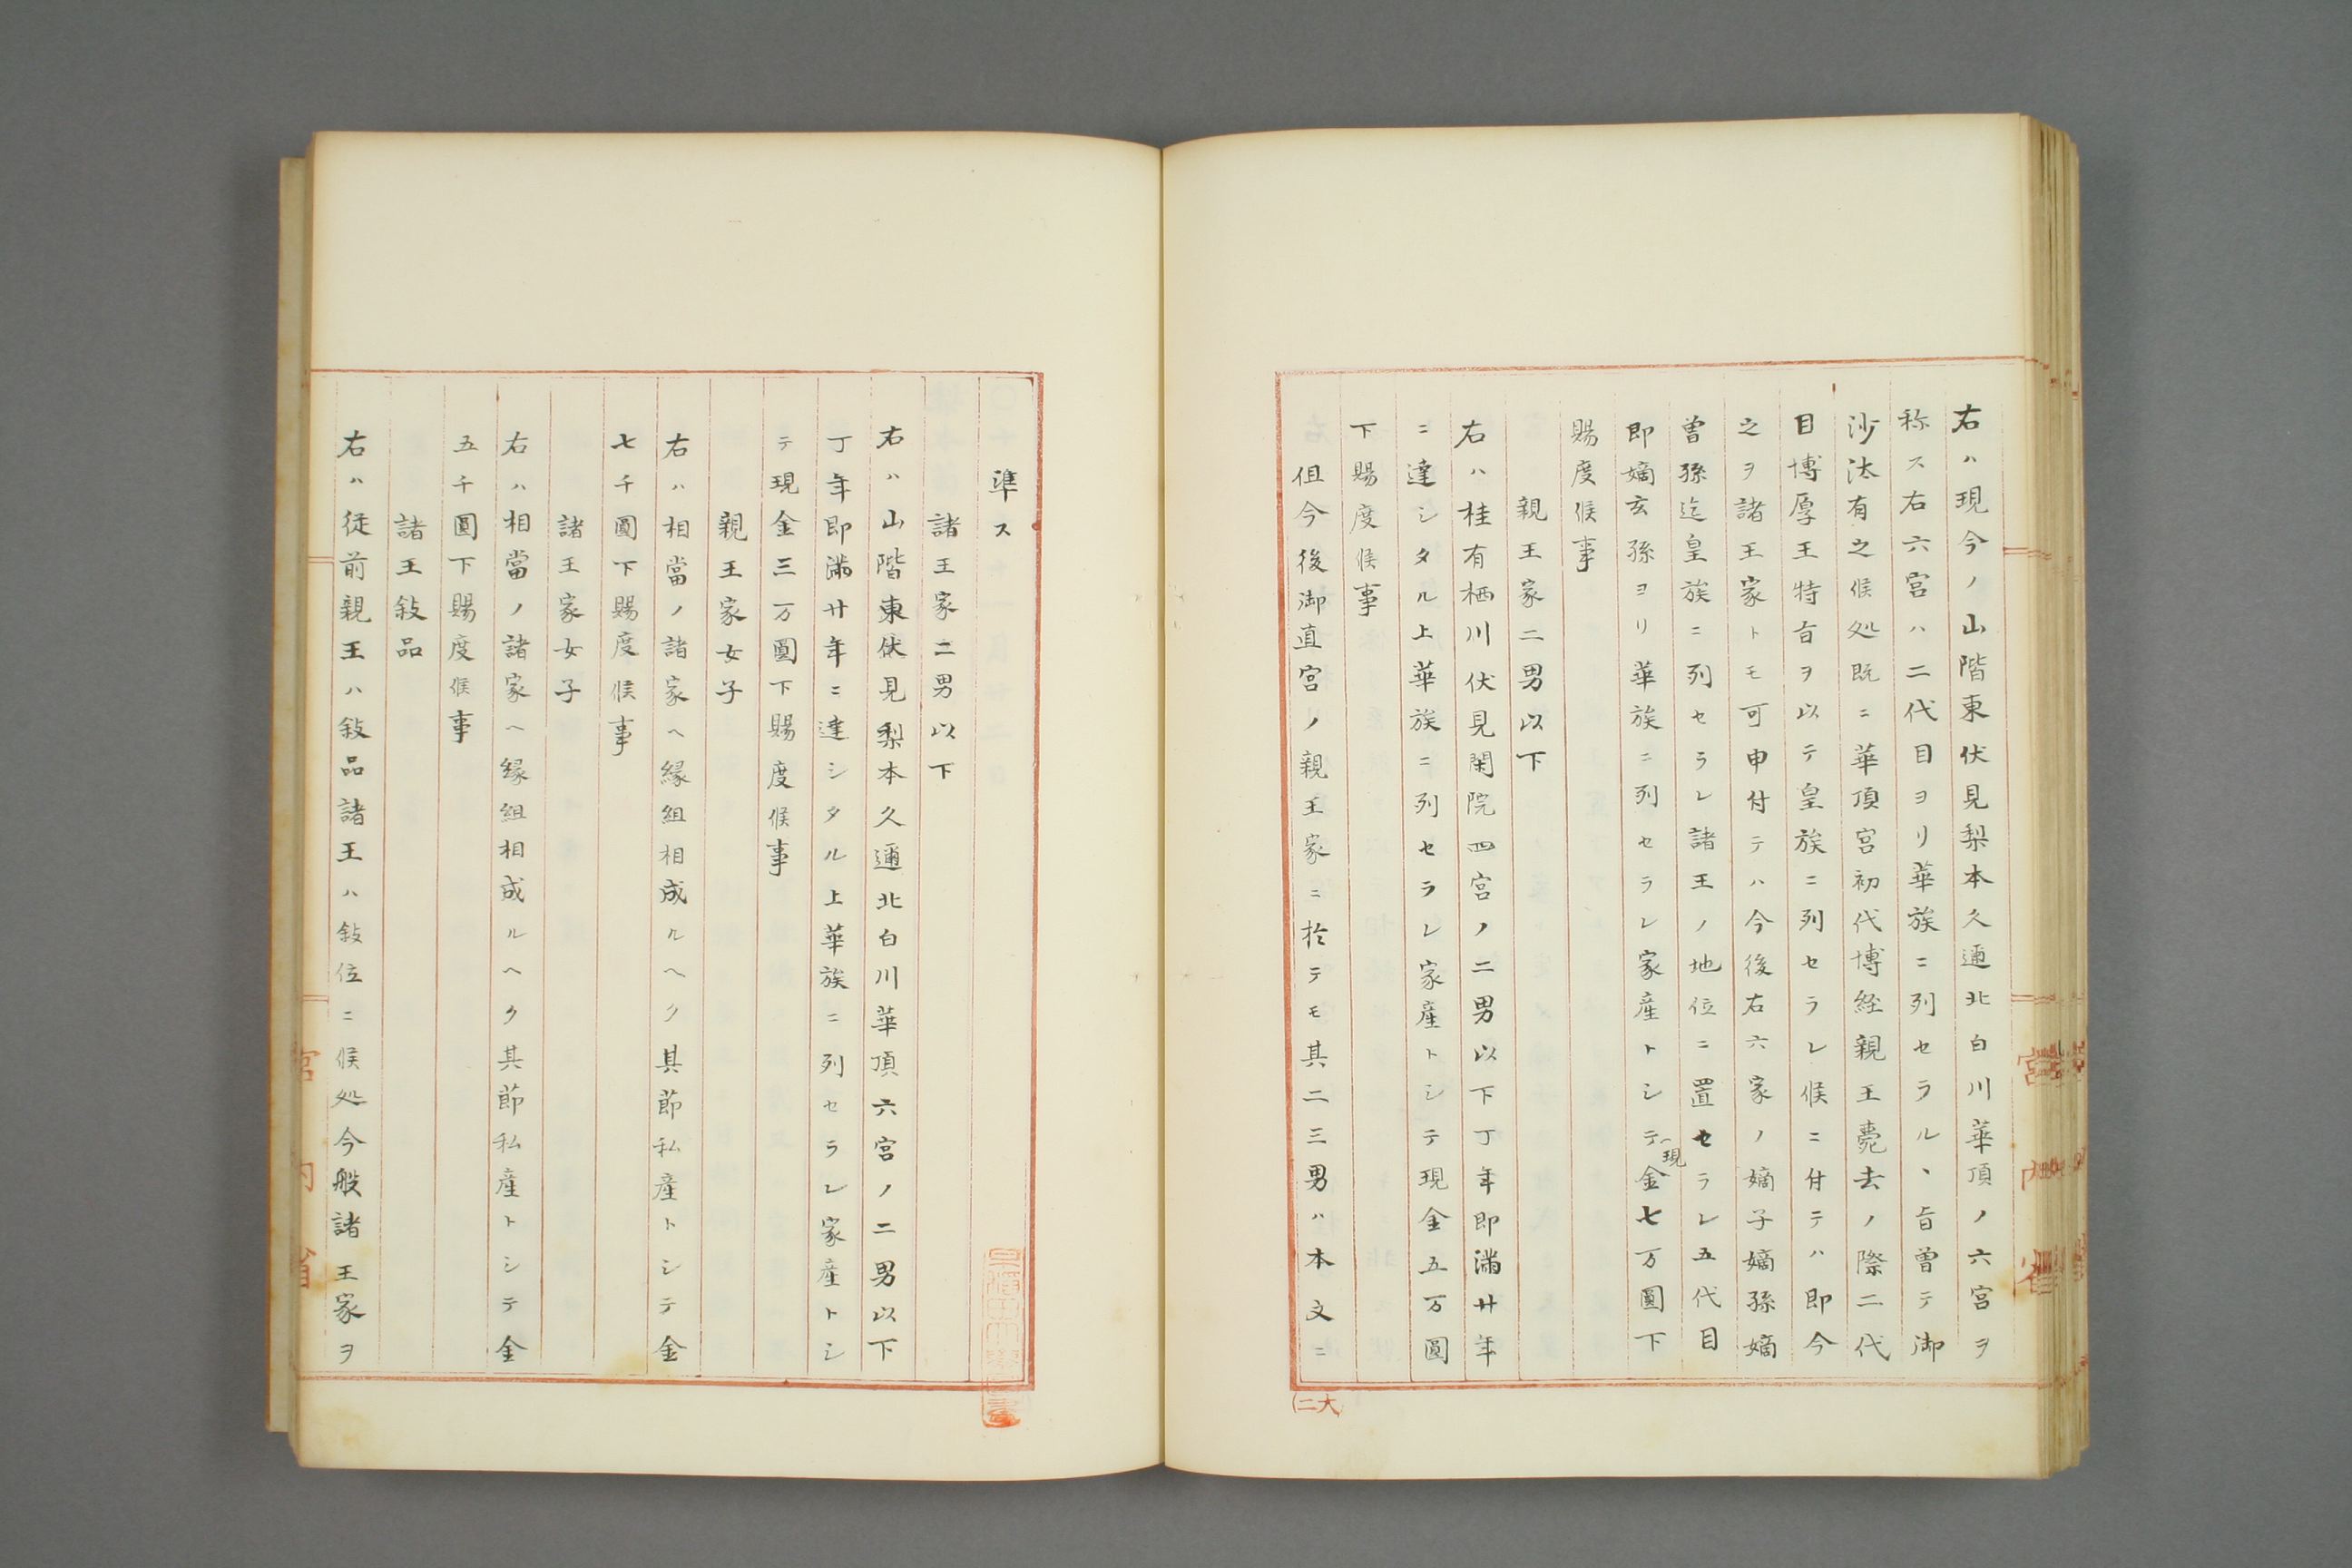 右ハ現今ノ山階東伏見梨本久邇北白川華頂ノ六宮ヲ
称ス右六宮ハ二代目ヨリ華族ニ列セラルヽ旨曽テ御
沙汰有之候処既ニ華頂宮初代博経親王薨去ノ際二代
目博厚王特旨ヲ以テ皇族ニ列セラレ候ニ付テハ即今
之ヲ諸王家トモ可申付テハ今後右六家ノ嫡子嫡孫嫡
曽孫迄皇族ニ列セラレ諸王ノ地位ニ置セラレ五代目
即嫡玄孫ヨリ華族ニ列セラレ家産トシテ現金七万圓下
賜度候事
親王家二男以下
右ハ桂有栖川伏見閑院四宮ノ二男以下丁年即満廿年
ニ達シタル上華族ニ列セラレ家産トシテ現金五万圓
下賜度候事
但今後御直宮ノ親王家ニ於テモ其二三男ハ本文ニ
大二
準ス
諸王家二男以下
右ハ山階東伏見梨本久邇北白川華頂六宮ノ二男以下
丁年即満廿年ニ達シタル上華族ニ列セラレ家産トシ
テ現金三万圓下賜度候事
親王家女子
右ハ相當ノ諸家ヘ縁組相成ルヘク其節私産トシテ金
七千圓下賜度候事
諸王家女子
右ハ相當ノ諸家ヘ縁組相成ルヘク其節私産トシテ金
五千圓下賜度候事
諸王敍品
右ハ従前親王ハ敍品諸王ハ敍位ニ候処今般諸王家ヲ
宮内省